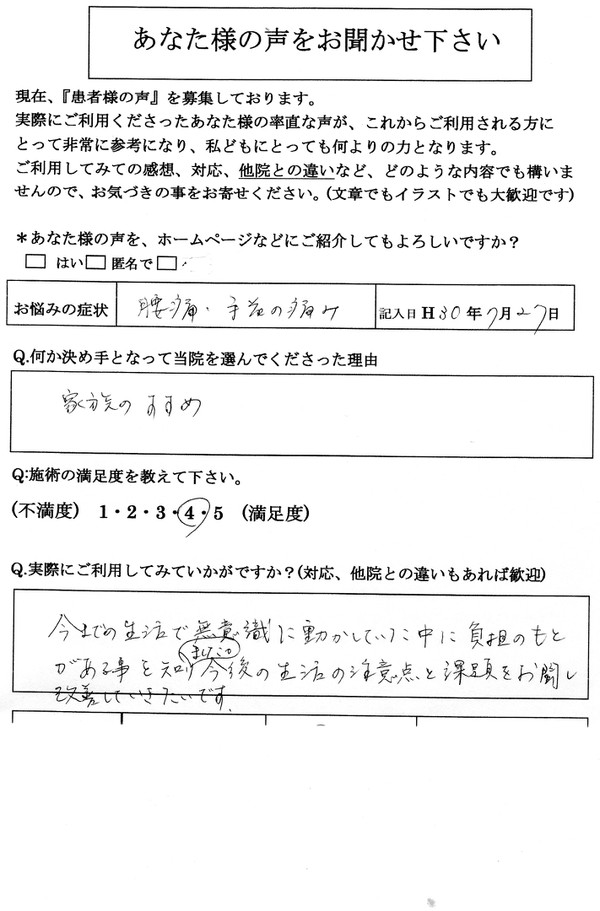 あなた様の声をお聞かせ下さい
現在、『患者様の声』を募集しております。
実際にご利用くださったあなた様の率直な声が、これからご利用される方に
とって非常に参考になり、私どもにとっても何よりの力となります。
ご利用してみての感想、対応、他院との違いなど、どのような内容でも構いま
せんので、お気づきの事をお寄せください。(文章でもイラストでも大歓迎です)
＊あなた様の声を、ホームページなどにご紹介してもよろしいですか？
□ はい □ 匿名で □
お悩みの症状 腰痛・手首の痛み 記入日 H30年7月27日
Q.何か決め手となって当院を選んでくださった理由
家族のすすめ
Q:施術の満足度を教えて下さい。
(不満度) 1・2・3・4・5 (満足度)
Q.実際にご利用してみていかがですか？(対応、他院との違いもあれば歓迎)
今までの生活で無意識に動かしていた中に負担のもと
がある事を知り今後の生活の注意点と課題をお聞し
改善していきたいです。